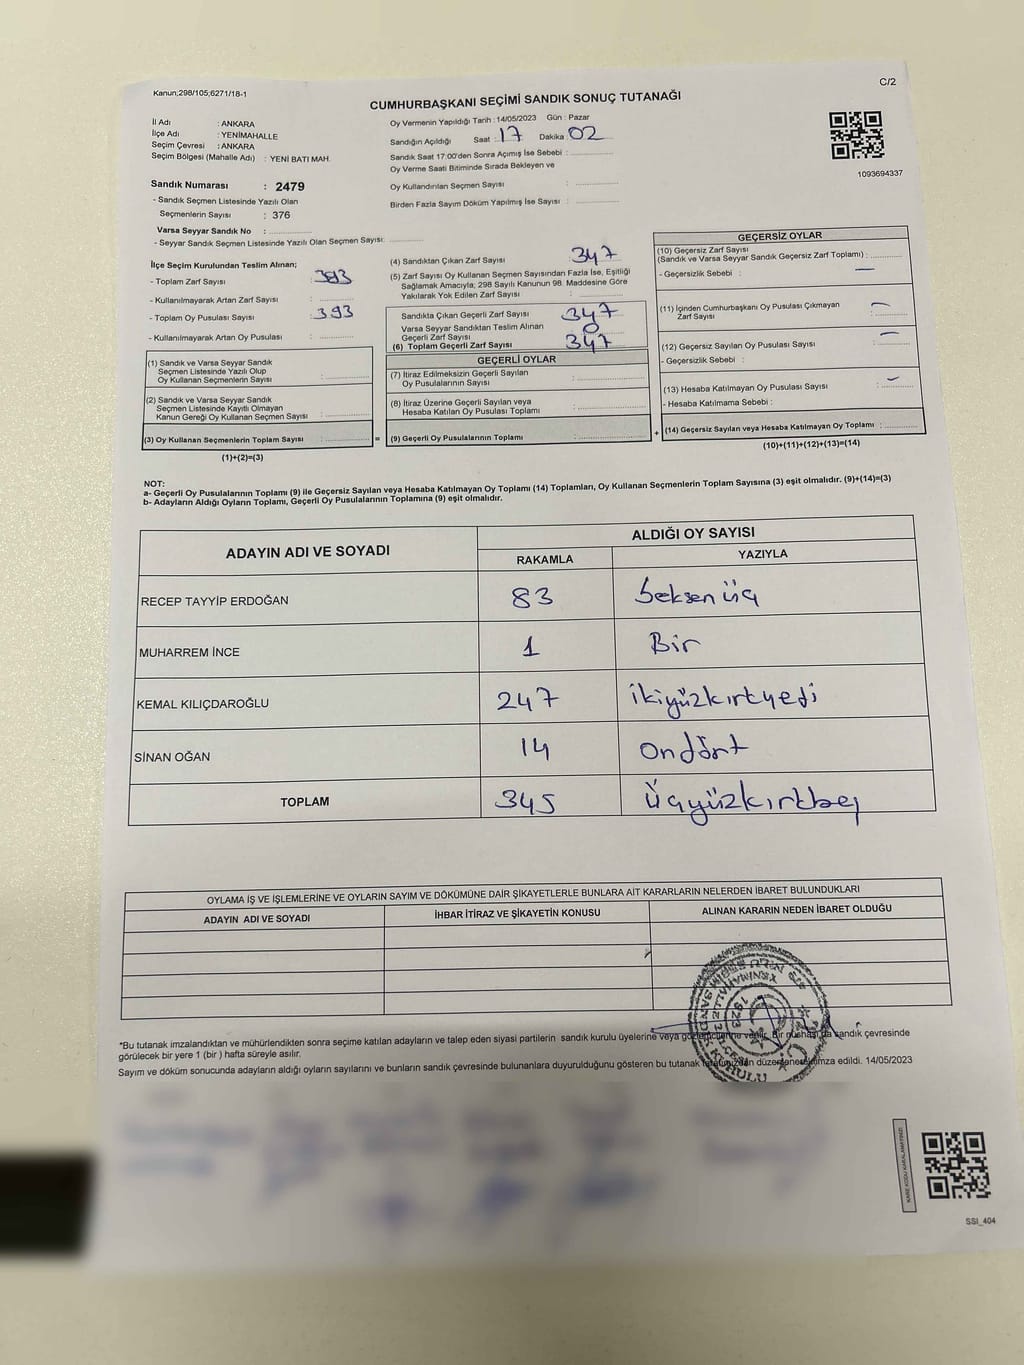 Kanun;298/105;6271/18-1
C/2
CUMHURBAŞKANI SEÇİMİ SANDIK SONUÇ TUTANAĞI
İl Adı : ANKARA
İlçe Adı : YENİMAHALLE
Seçim Çevresi : ANKARA
Seçim Bölgesi (Mahalle Adı) : YENİ BATI MAH.
Oy Vermenin Yapıldığı Tarih : 14/05/2023 Gün : Pazar
Sandığın Açıldığı Saat : 17 Dakika : 02
Sandık Saat 17:00'den Sonra Açımış İse Sebebi :
Oy Verme Saati Bitiminde Sırada Bekleyen ve
Oy Kullandırılan Seçmen Sayısı :
Birden Fazla Sayım Döküm Yapılmış İse Sayısı :
1093694337
Sandık Numarası : 2479
- Sandık Seçmen Listesinde Yazılı Olan
Seçmenlerin Sayısı : 376
Varsa Seyyar Sandık No :
- Seyyar Sandık Seçmen Listesinde Yazılı Olan Seçmen Sayısı:
İlçe Seçim Kurulundan Teslim Alınan;
- Toplam Zarf Sayısı : 393
- Kullanılmayarak Artan Zarf Sayısı :
- Toplam Oy Pusulası Sayısı : 393
- Kullanılmayarak Artan Oy Pusulası :
(1) Sandık ve Varsa Seyyar Sandık
Seçmen Listesinde Yazılı Olup
Oy Kullanan Seçmenlerin Sayısı :
(2) Sandık ve Varsa Seyyar Sandık
Seçmen Listesinde Kayıtlı Olmayan
Kanun Gereği Oy Kullanan Seçmen Sayısı :
(3) Oy Kullanan Seçmenlerin Toplam Sayısı : =
(1)+(2)=(3)
(4) Sandıktan Çıkan Zarf Sayısı : 347
(5) Zarf Sayısı Oy Kullanan Seçmen Sayısından Fazla İse, Eşitliği
Sağlamak Amacıyla; 298 Sayılı Kanunun 98. Maddesine Göre
Yakılarak Yok Edilen Zarf Sayısı :
Sandıkta Çıkan Geçerli Zarf Sayısı : 347
Varsa Seyyar Sandıktan Teslim Alınan
Geçerli Zarf Sayısı : 0
(6) Toplam Geçerli Zarf Sayısı : 347
GEÇERLİ OYLAR
(7) İtiraz Edilmeksizin Geçerli Sayılan
Oy Pusulalarının Sayısı :
(8) İtiraz Üzerine Geçerli Sayılan veya
Hesaba Katılan Oy Pusulası Toplamı :
(9) Geçerli Oy Pusulalarının Toplamı : +
GEÇERSİZ OYLAR
(10) Geçersiz Zarf Sayısı
(Sandık ve Varsa Seyyar Sandık Geçersiz Zarf Toplamı) :
- Geçersizlik Sebebi : —
(11) İçinden Cumhurbaşkanı Oy Pusulası Çıkmayan
Zarf Sayısı : —
(12) Geçersiz Sayılan Oy Pusulası Sayısı : —
- Geçersizlik Sebebi :
(13) Hesaba Katılmayan Oy Pusulası Sayısı : —
- Hesaba Katılmama Sebebi :
(14) Geçersiz Sayılan veya Hesaba Katılmayan Oy Toplamı :
(10)+(11)+(12)+(13)=(14)
NOT:
a- Geçerli Oy Pusulalarının Toplamı (9) ile Geçersiz Sayılan veya Hesaba Katılmayan Oy Toplamı (14) Toplamları, Oy Kullanan Seçmenlerin Toplam Sayısına (3) eşit olmalıdır. (9)+(14)=(3)
b- Adayların Aldığı Oyların Toplamı, Geçerli Oy Pusulalarının Toplamına (9) eşit olmalıdır.
ADAYIN ADI VE SOYADI
ALDIĞI OY SAYISI
RAKAMLA YAZIYLA
RECEP TAYYİP ERDOĞAN 83 Seksenüç
MUHARREM İNCE 1 Bir
KEMAL KILIÇDAROĞLU 247 ikiyüzkırkyedi
SİNAN OĞAN 14 Ondört
TOPLAM 345 Üçyüzkırkbeş
OYLAMA İŞ VE İŞLEMLERİNE VE OYLARIN SAYIM VE DÖKÜMÜNE DAİR ŞİKAYETLERLE BUNLARA AİT KARARLARIN NELERDEN İBARET BULUNDUKLARI
ADAYIN ADI VE SOYADI İHBAR İTİRAZ VE ŞİKAYETİN KONUSU ALINAN KARARIN NEDEN İBARET OLDUĞU
*Bu tutanak imzalandıktan ve mühürlendikten sonra seçime katılan adayların ve talep eden siyasi partilerin sandık kurulu üyelerine veya gözlemcilerine verilir. Bir nüshası da sandık çevresinde
görülecek bir yere 1 (bir ) hafta süreyle asılır.
Sayım ve döküm sonucunda adayların aldığı oyların sayılarını ve bunların sandık çevresinde bulunanlara duyurulduğunu gösteren bu tutanak tarafımızdan düzenlenerek imza edildi. 14/05/2023
1923
KARE KODU KARALAMAYINIZ!
SSI_404